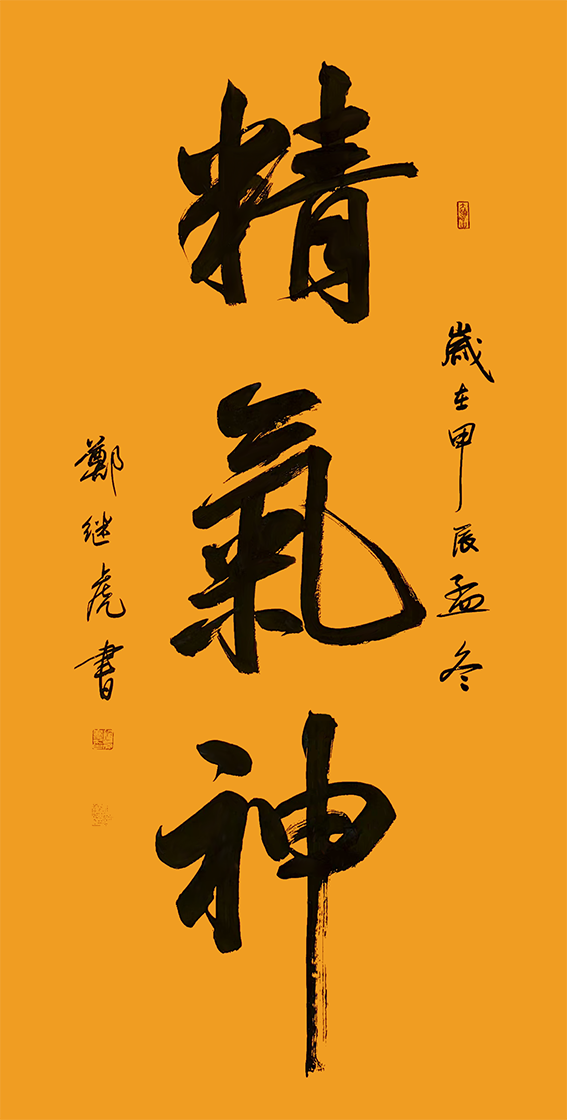 歲在甲辰孟冬
精氣神
鄭继虎書